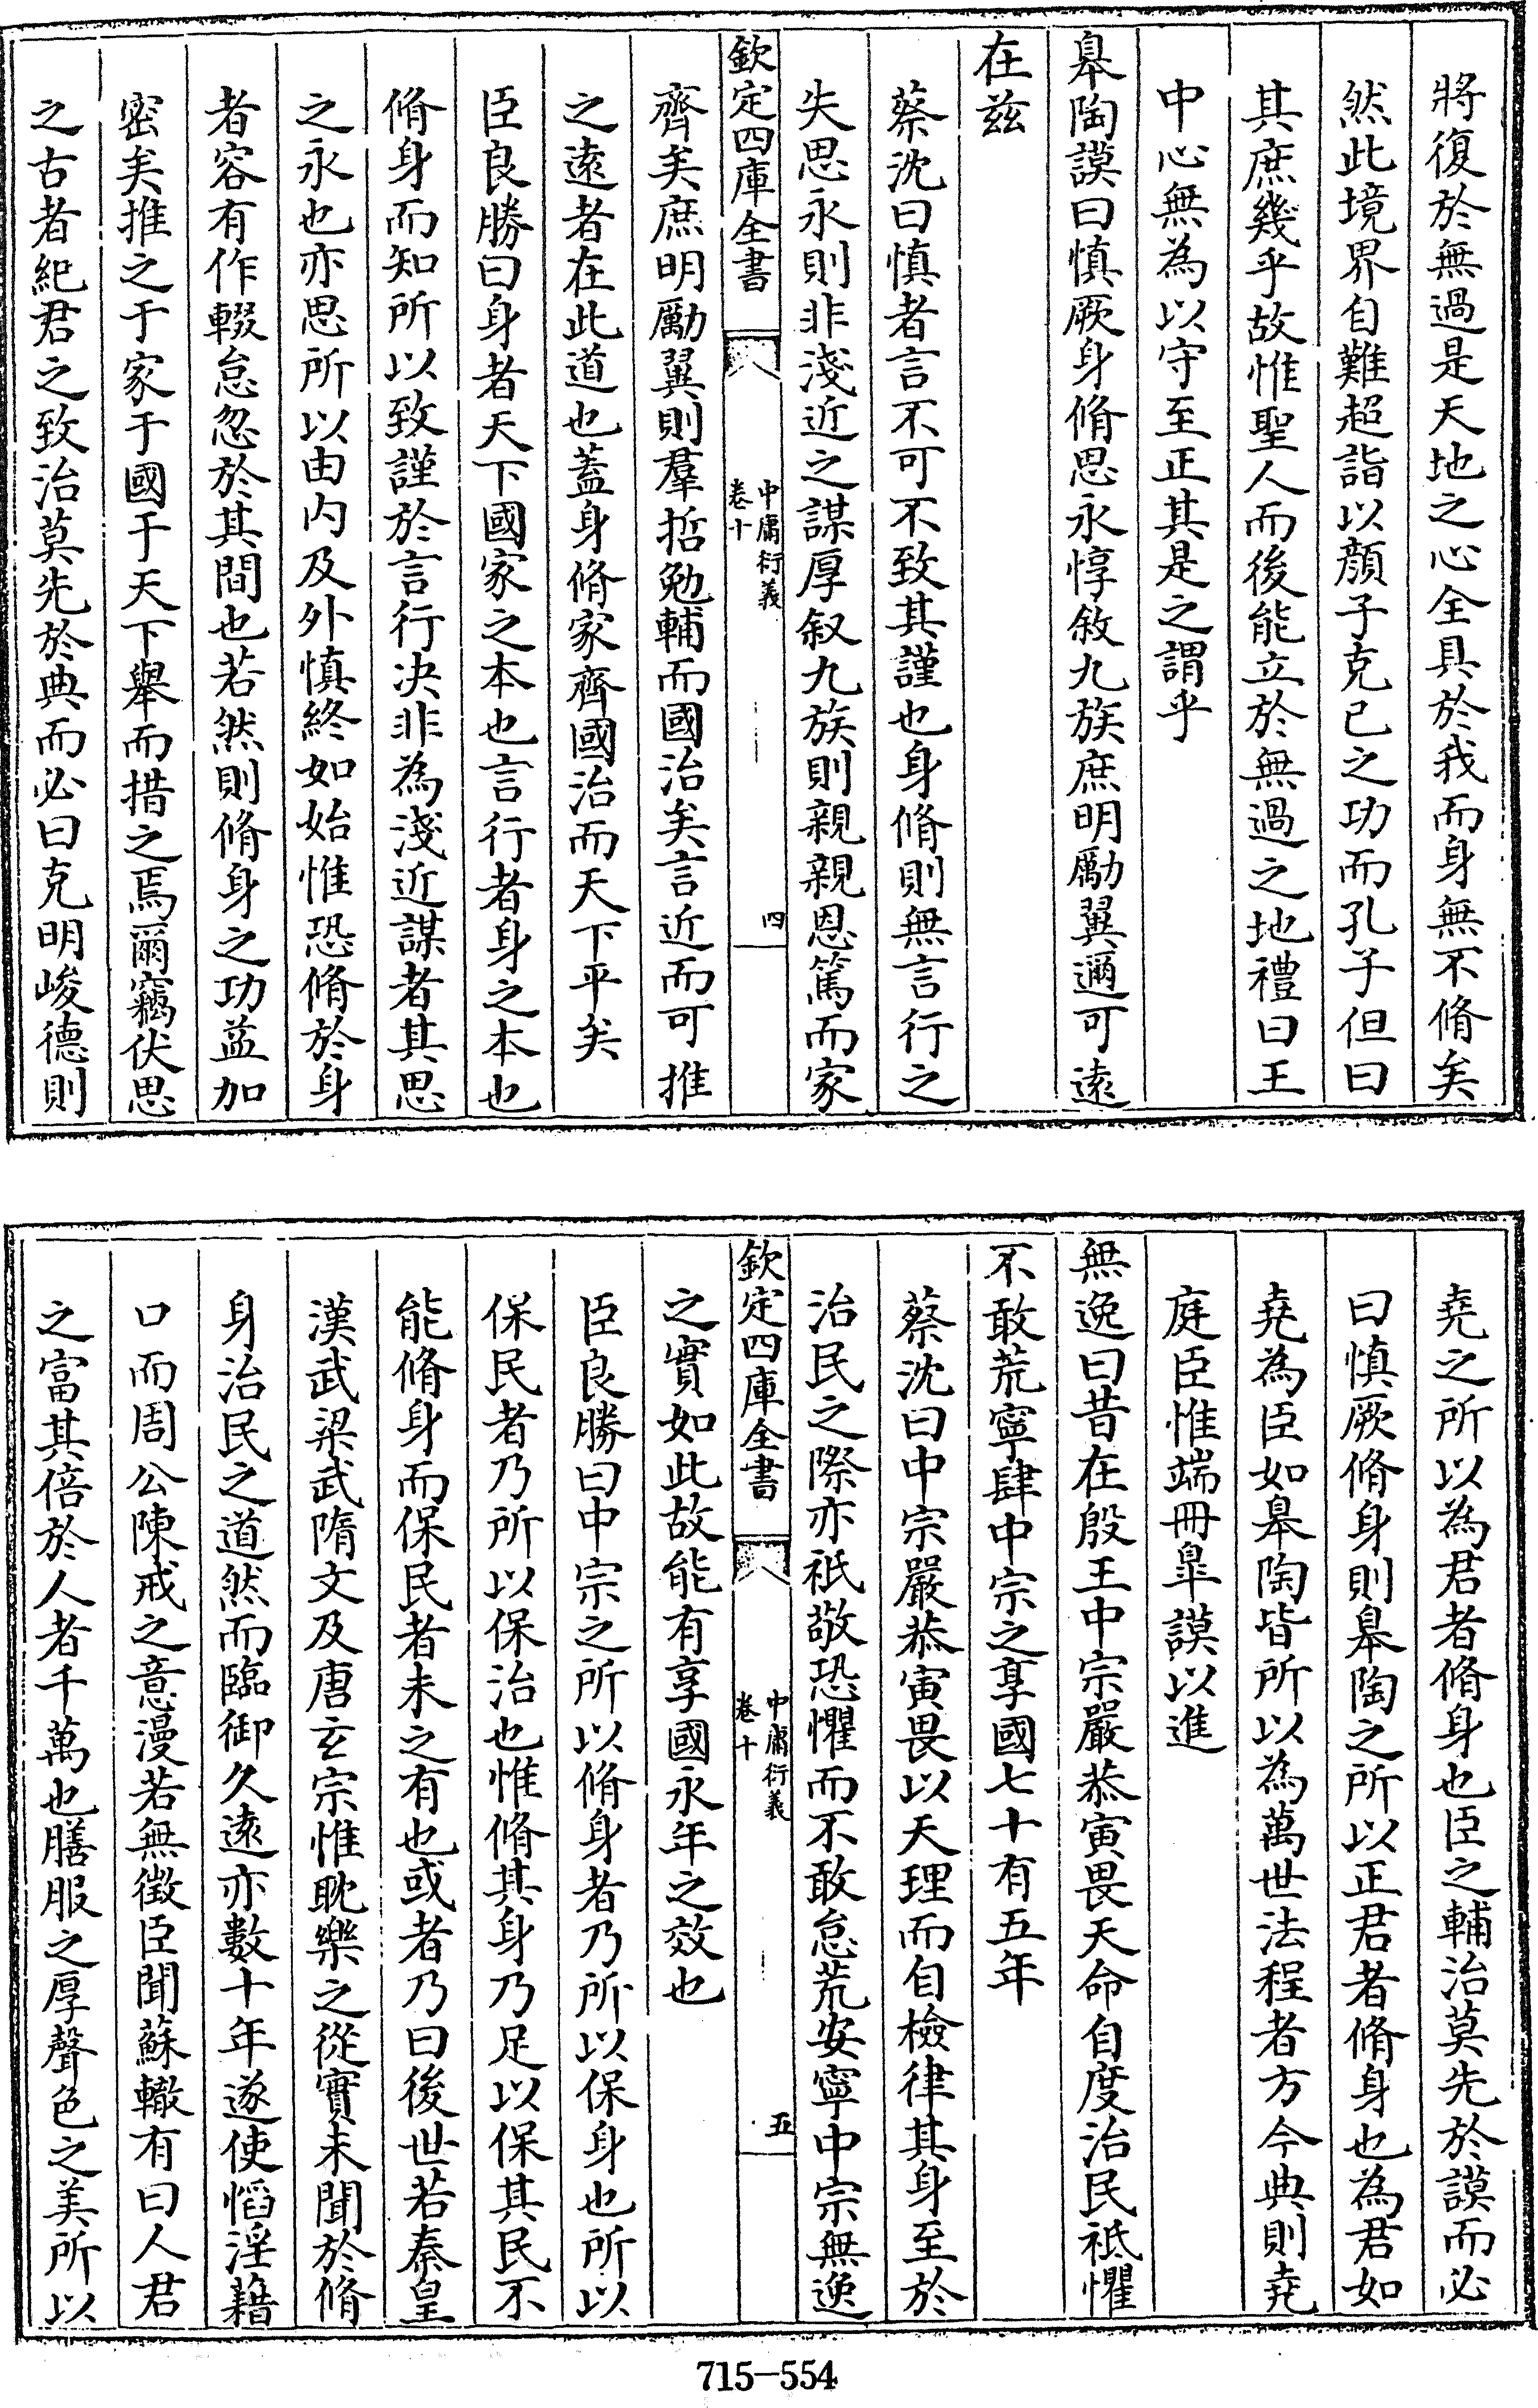 將復於無過是天地之心全具於我而身無不脩矣
然此境界自難超詣以顔子克已之功而孔子但曰
其庶幾乎故惟聖人而後能立於無過之地禮曰王
中心無為以守至正其是之謂乎
皋陶謨曰慎厥身脩思永惇敘九族庶明勵翼邇可逺
在兹
蔡沈曰慎者言不可不致其謹也身脩則無言行之
失思永則非淺近之謀厚叙九族則親親恩篤而家
欽定四庫全書
中庸衍義
卷十
四
齊矣庶明勵翼則羣哲勉輔而國治矣言近而可推
之逺者在此道也蓋身脩家齊國治而天下平矣
臣良勝曰身者天下國家之本也言行者身之本也
脩身而知所以致謹於言行决非為淺近謀者其思
之永也亦思所以由内及外慎終如始惟恐脩於身
者容有作輟怠忽於其間也若然則脩身之功益加
密矣推之于家于國于天下舉而措之焉爾竊伏思
之古者紀君之致治莫先於典而必曰克明峻德則
堯之所以為君者脩身也臣之輔治莫先於謨而必
曰慎厥脩身則皋陶之所以正君者脩身也為君如
堯為臣如皋陶皆所以為萬世法程者方今典則堯
庭臣惟端冊臯謨以進
無逸曰昔在殷王中宗嚴恭寅畏天命自度治民祗懼
不敢荒寧肆中宗之享國七十有五年
蔡沈曰中宗嚴恭寅畏以天理而自檢律其身至於
治民之際亦祗敬恐懼而不敢怠荒安寧中宗無逸
欽定四庫全書
中庸衍義
卷十
五
之實如此故能有享國永年之效也
臣良勝曰中宗之所以脩身者乃所以保身也所以
保民者乃所以保治也惟脩其身乃足以保其民不
能脩身而保民者未之有也或者乃曰後世若秦皇
漢武梁武隋文及唐玄宗惟耽樂之從實未聞於脩
身治民之道然而臨御久逺亦數十年遂使慆淫藉
口而周公陳戒之意漫若無徴臣聞蘇轍有曰人君
之富其倍於人者千萬也膳服之厚聲色之美所以
715-554